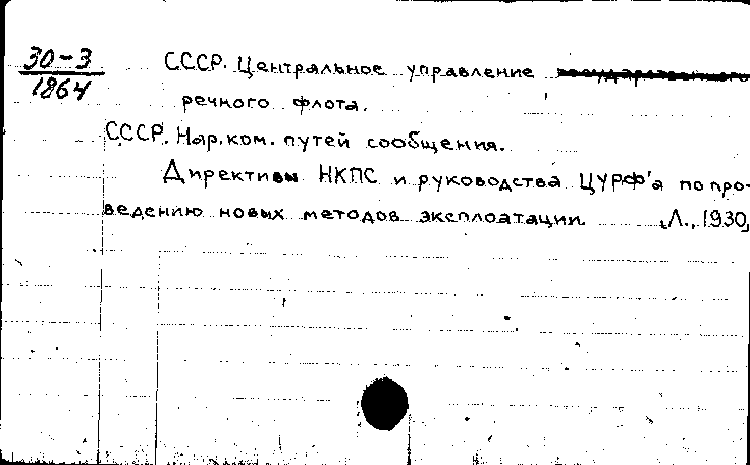 30-3
1864
СССР. Центральное управление государственного
речного флота.
СССР. Нар.ком. путей сообщения.
Директивы НКПС и руководства ЦУРФ'а по про-
ведению новых методов эксплоатации Л., 1930,